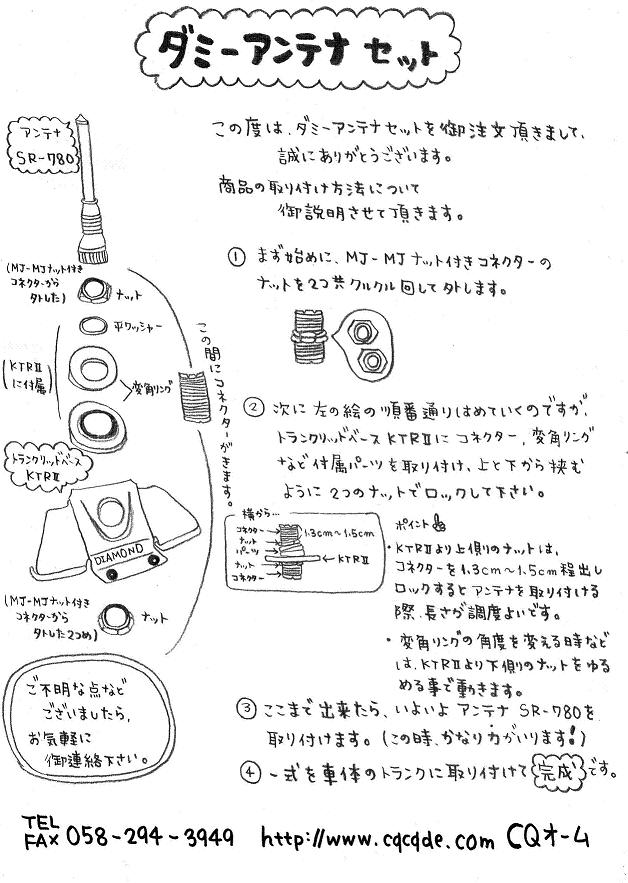 ダミーアンテナ セット
アンテナ
SR-780
(MJ-MJナット付き
コネクターから
外した)
ナット
平ワッシャー
(KTRⅡ
に付属)
変角リング
この間にコネクターがきます。
トランクリッドベース
KTRⅡ
DIAMOND
(MJ-MJナット付き
コネクターから
外した2つめ)
ナット
ご不明な点など
ございましたら、
お気軽に
御連絡下さい。
この度は、ダミーアンテナセットを御注文頂きまして、
誠にありがとうございます。
商品の取り付け方法について
御説明させて頂きます。
① まず始めに、MJ-MJナット付きコネクターの
ナットを2つ共クルクル回して外します。
② 次に左の絵の順番通りはめていくのですが、
トランクリッドベースKTRⅡにコネクター、変角リング
など付属パーツを取り付け、上と下から挟む
ように2つのナットでロックして下さい。
横から…
コネクター→
ナット→
パーツ→
ナット→
コネクター→
1.3cm~1.5cm
←KTRⅡ
ポイント
・KTRⅡより上側のナットは、
コネクターを1.3cm~1.5cm程出し
ロックするとアンテナを取り付ける
際、長さが調度よいです。
・変角リングの角度を変える時など
は、KTRⅡより下側のナットをゆる
める事で動きます。
③ ここまで出来たら、いよいよアンテナ SR-780を
取り付けます。(この時、かなり力がいります!)
④ 一式を車体のトランクに取り付けて完成です。
TEL
FAX 058-294-3949 http://www.cqcqde.com CQオーム